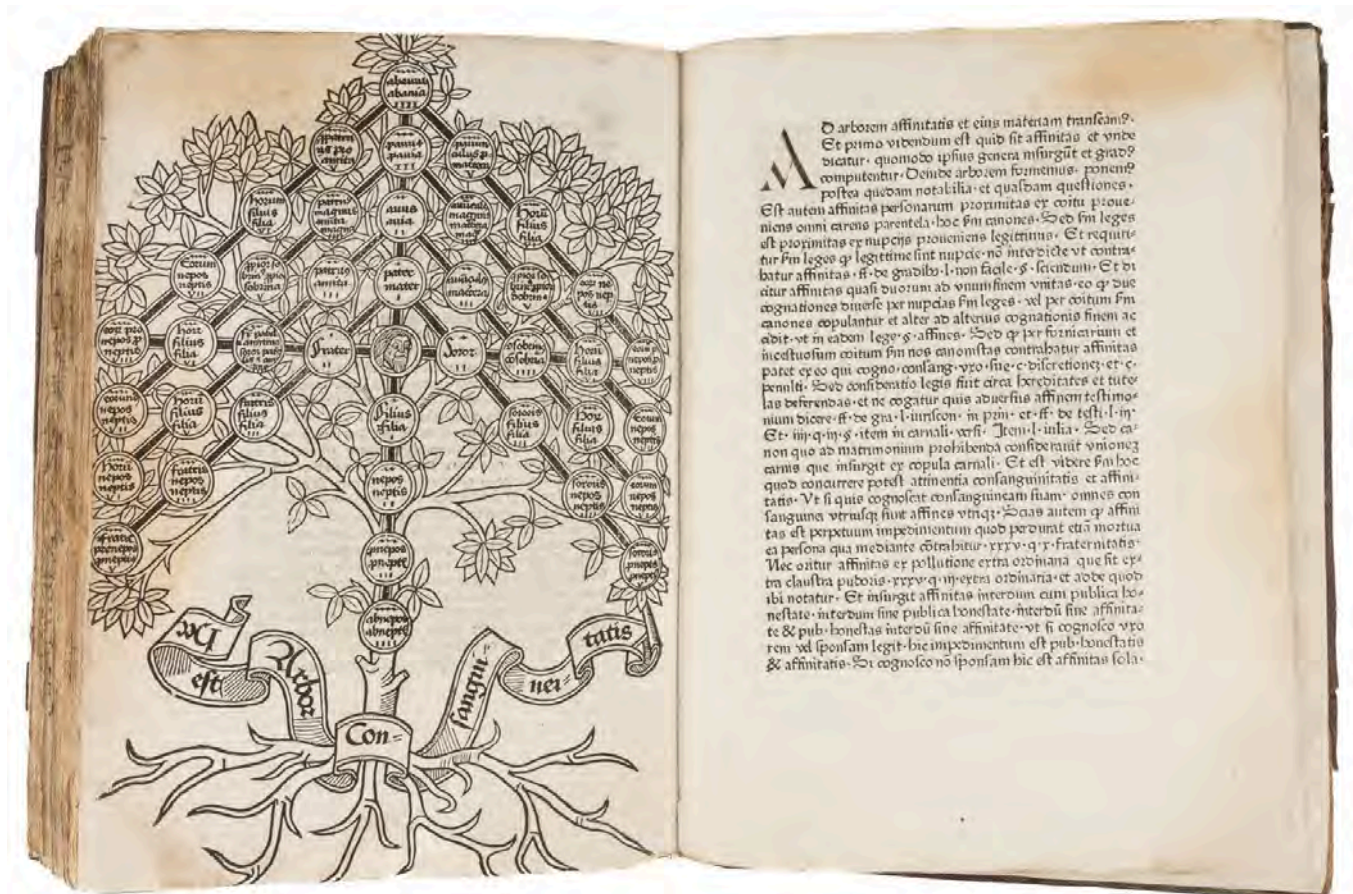 abauus
abauia
IIII
ꝓpatru
us ꝓpro
amita
V
pauus
pauia
III
V
Horum
filius
filia
patruus
magnus
amita
magna
IIII
auus
auia
II
auūculus
magnus
Horū
filius
filia
Eorum
nepos
neptis
VII
patruus
amita
III
pater
mater
I
auūculus
matertera
III
nepos
Horū
filius
filia
VI
frater
II
Soror
II
Horū
filius
filia
VI
eorum
nepos
neptis
Horū
filius
filia
V
fratris
filius
filia
III
filius
filia
I
sororis
filius
filia
III
Horū
filius
filia
V
Horū
nepos
neptis
VI
fratris
nepos
neptis
IIII
nepos
neptis
II
sororis
nepos
neptis
IIII
eorum
nepos
neptis
fratris
pronepos
proneptis
V
pnepos
pnepts
III
sororis
pnepos
pneptis
V
abnepos
abneptis
IIII
Hec est Arbor Con= sangui nei= tatis
AD arborem affinitatis et eius materiam transeamꝰ.
Et primo videndum est quid sit affinitas et vnde
dicatur· quomodo ipsius genera insurgūt et gradꝰ
computentur· Deinde arborem formemus· ponemꝰ
postea quedam notabilia· et quasdam questiones·
Est autem affinitas personarum proximitas ex coitu proue-
niens omni carens parentela· hoc ẜm canones· Sed ẜm leges
est proximitas ex nupcijs proueniens legittimis· Et requiri-
tur ẜm leges ꝙ legittime sint nupcie· nō interdicte vt contra-
hatur affinitas· ff· de gradibꝰ· l· non facile· §· sciendum· Et di
citur affinitas quasi duorum ad vnum finem vnitas· eo ꝙ due
cognationes diuerse per nupcias ẜm leges· vel per coitum ẜm
canones copulantur et alter ad alterius cognationis finem ac
cidit· vt in eadem lege· §· affines· Sed ꝙ per fornicarium et
incestuosum coitum ẜm nos canonistas contrahatur affinitas
patet ex eo qui cogno· consang· vxo· sue· c· discretionez· et c·
penulti· Sed consideratio legis fuit circa hereditates et tute-
las deferendas· et ne cogatur quis aduersus affinem testimo-
nium dicere· ff· de gra· l· iuriscon· in prin· et· ff· de testi· l· in·
Et· iiij· q· iij· §· item in carnali· versi· Item· l· iulia· Sed ca-
non quo ad matrimonium prohibenda considerauit vnionez
carnis que insurgit ex copula carnali· Et est videre ẜm hoc
quod concurrere potest attinentia consanguinitatis et affini-
tatis· Vt si quis cognoscat consanguineam suam· omnes con
sanguinei vtriusqꝫ fiunt affines vtriqꝫ· Scias autem ꝙ affini
tas est perpetuum impedimentum quod perdurat etiā mortua
ea persona qua mediante cōtrahitur· xxxv· q· x· fraternitatis·
Nec oritur affinitas ex pollutione extra ordinaria que fit ex-
tra claustra pudoris· xxxv· q· iij· extra ordinaria· et adde quod
ibi notatur· Et insurgit affinitas interdum cum publica ho-
nestate· interdum sine publica honestate· interdū sine affinita-
te & pub· honestas interdū sine affinitate· vt si cognosco vxo
rem vel sponsam legit· hic impedimentum est pub· honestatis
& affinitatis· Si cognosco nō sponsam hic est affinitas sola·